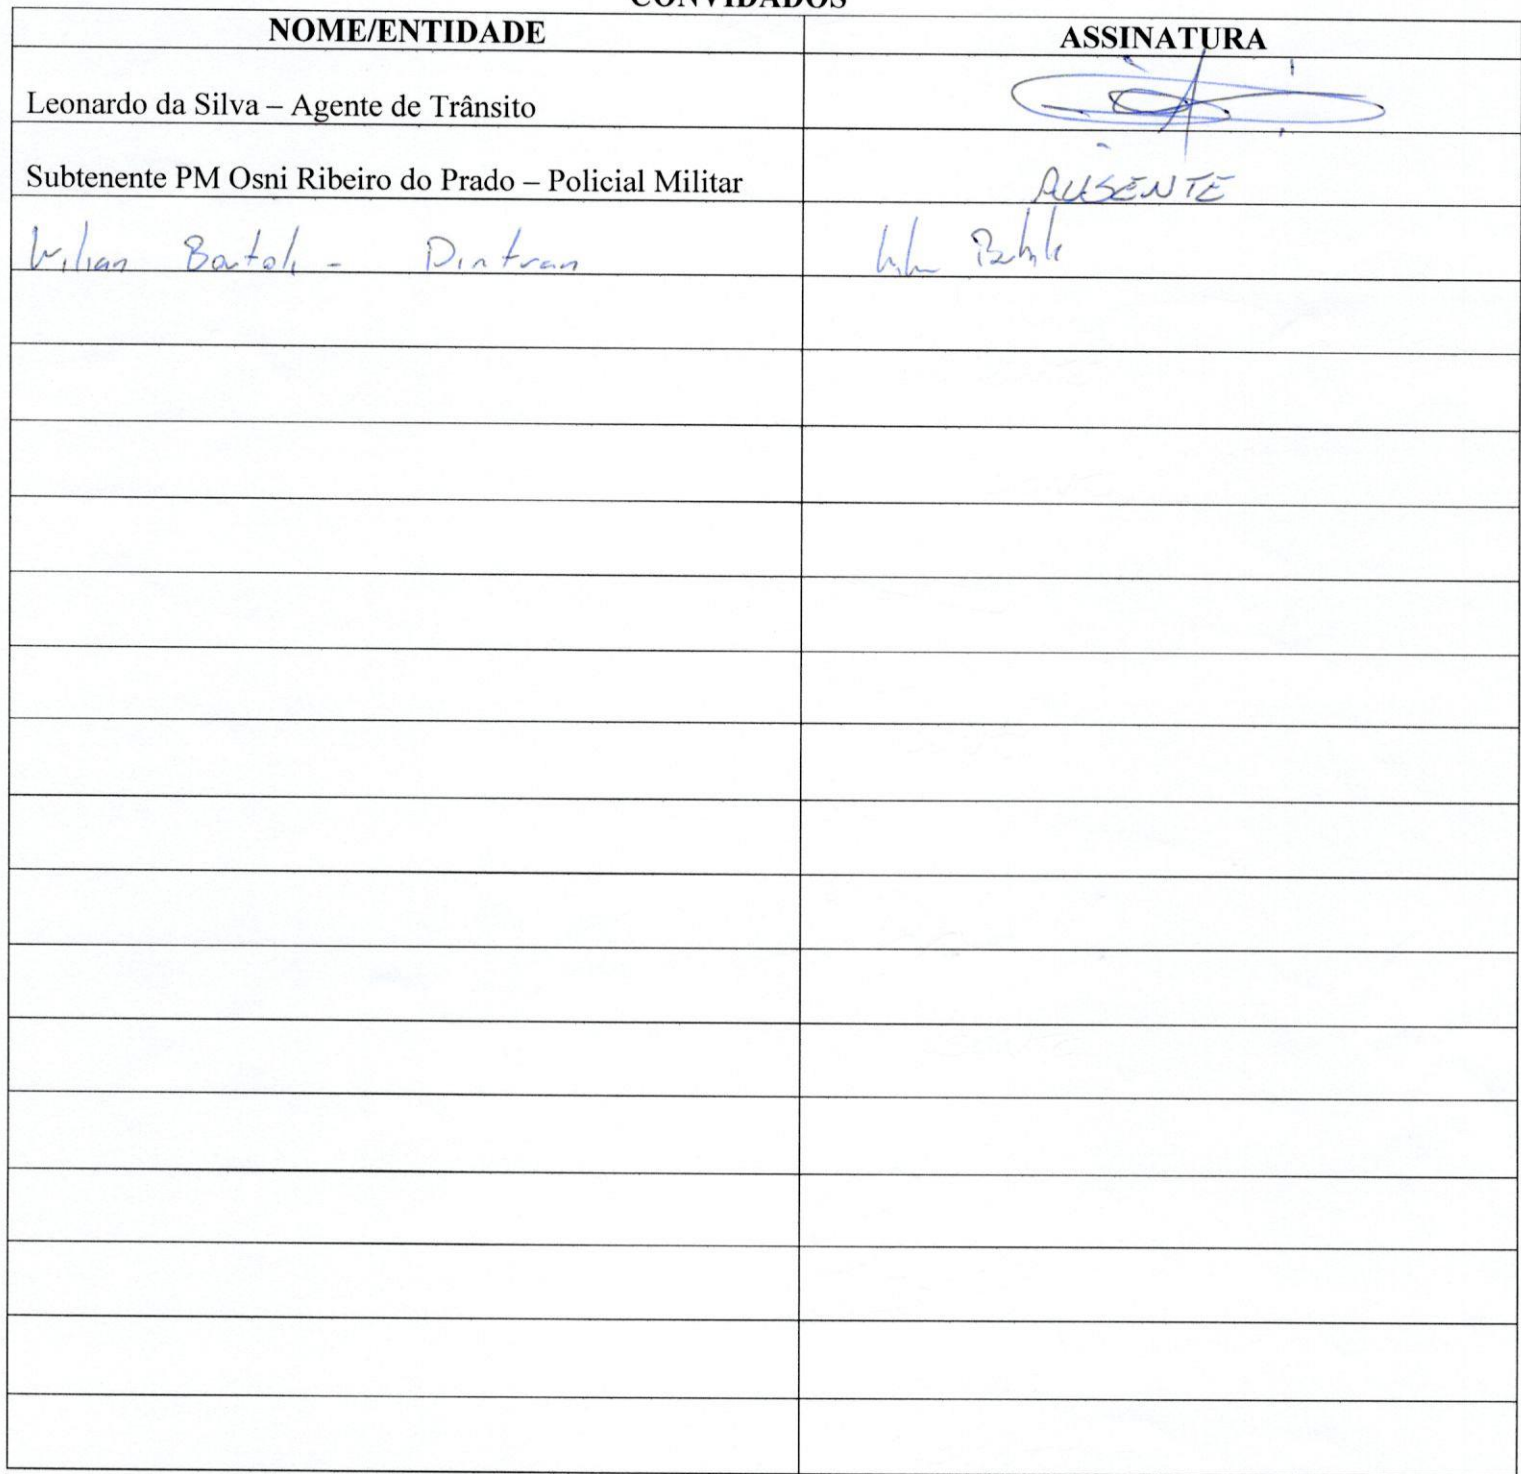 CONVIDADOS
NOME/ENTIDADE ASSINATURA
Leonardo da Silva – Agente de Trânsito
Subtenente PM Osni Ribeiro do Prado – Policial Militar AUSENTE
Wilian Bartoli - Dintran